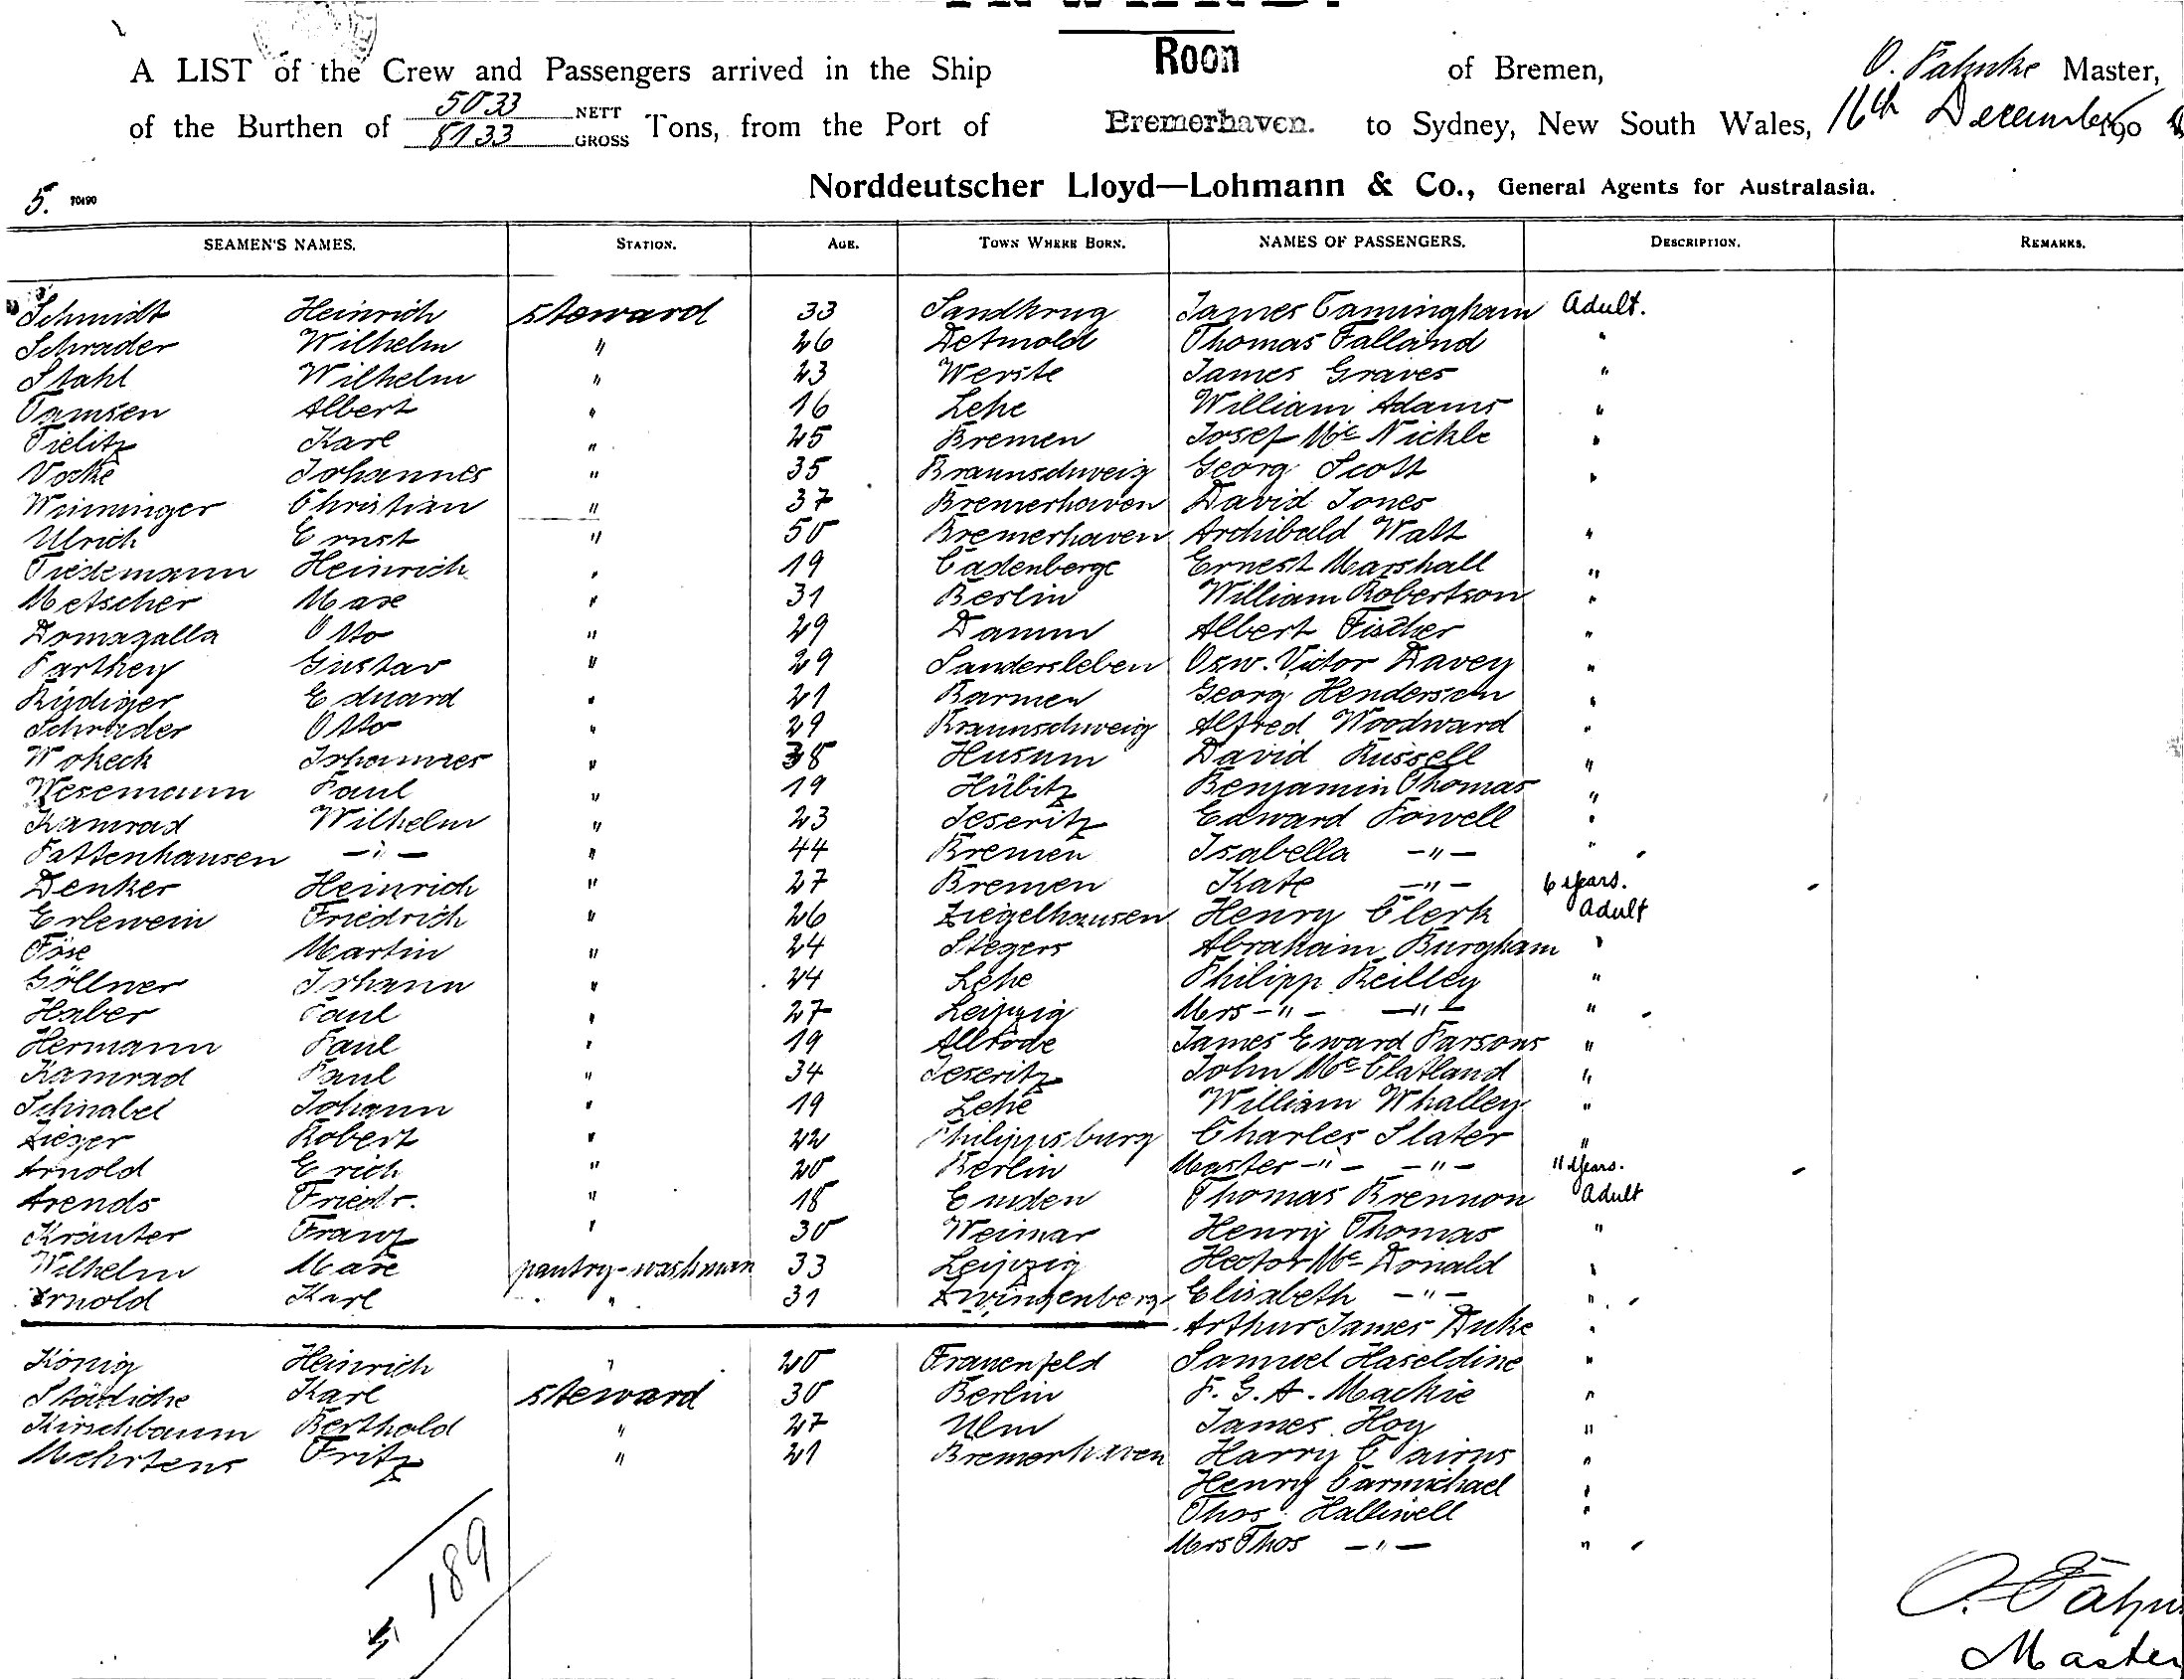 Roon
A LIST of the Crew and Passengers arrived in the Ship of Bremen, O. Pahnke Master,
of the Burthen of 5033 NETT 8133 GROSS Tons, from the Port of Bremerhaven. to Sydney, New South Wales, 16th December 190
5. 70490 Norddeutscher Lloyd—Lohmann & Co., General Agents for Australasia.
SEAMEN'S NAMES. STATION. AGE. TOWN WHERE BORN. NAMES OF PASSENGERS. DESCRIPTION. REMARKS.
Schmidt Heinrich steward 33 Sandkrug James Camingham Adult.
Schrader Wilhelm " 26 Detmold Thomas Falland "
Stahl Wilhelm " 23 Werste James Graves "
Tamsen Albert " 16 Lehe William Adams "
Tielitz Karl " 25 Bremen Josef Mc Nickle "
Vocke Johannes " 35 Braunschweig Georg Scott "
Wimminger Christian " 37 Bremerhaven David Jones
Ulrich Ernst " 50 Bremerhaven Archibald Watt "
Tiedemann Heinrich " 19 Cadenberge Ernest Marshall "
Metscher Max " 31 Berlin William Robertson "
Domagalla Otto " 29 Damm Albert Fischer "
Parthey Gustav " 29 Sandersleben Osw. Victor Davey "
Rüdiger Eduard " 21 Barmen Georg Henderson "
Schröder Otto " 29 Braunschweig Alfred Woodward "
Wokeck Johannes " 38 Husum David Russell "
Wesemann Paul " 19 Hübitz Benjamin Thomas "
Kamrad Wilhelm " 23 Jeseritz Edward Powell "
Pattenhausen -"- " 44 Bremen Isabella -"- "
Denker Heinrich " 27 Bremen Kate -"- 6 years.
Erlewein Friedrich " 26 Ziegelhausen Henry Clerk Adult
Föse Martin " 24 Stegers Abraham Burgham "
Göllner Johann " 24 Lehe Philipp Reilley "
Haber Paul " 27 Leipzig Mrs -"- -"- "
Hermann Paul " 19 Allrode James Eward Parsons "
Kamrad Paul " 34 Jeseritz John Mc Clatland "
Schnabel Johann " 19 Lehe William Whalley "
Zieger Robert " 22 Philippsburg Charles Slater "
Arnold Erich " 20 Berlin Master -"- -"- 11 years.
Arends Friedr. " 18 Emden Thomas Brennon Adult
Kräuter Franz " 30 Weimar Henry Thomas "
Wilhelm Max pantry-washman 33 Leipzig Hector Mc Donald "
Arnold Karl " 31 Zwingenberg Elisabeth -"- "
Arthur James Duke "
König Heinrich " 20 Frauenfeld Samuel Haseldine "
Städiche Karl steward 30 Berlin F. G. A. Mackie "
Kirschbaum Berthold " 27 Ulm James Hoy "
Mehrtens Fritz " 21 Bremerhaven Harry Cairns "
Henry Carmichael "
Thos. Halliwell "
Mrs Thos -"- "
189
O. Pahn
Master